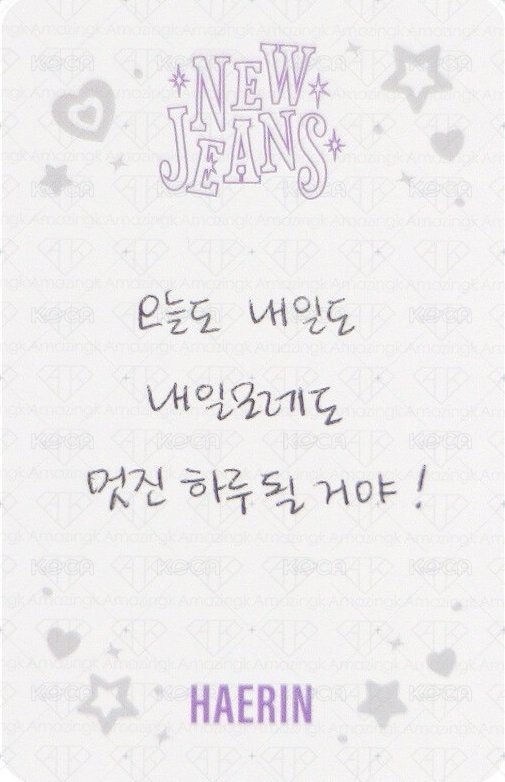 NEW
JEANS
오늘도 내일도
내일모레도
멋진 하루 될 거야!
HAERIN